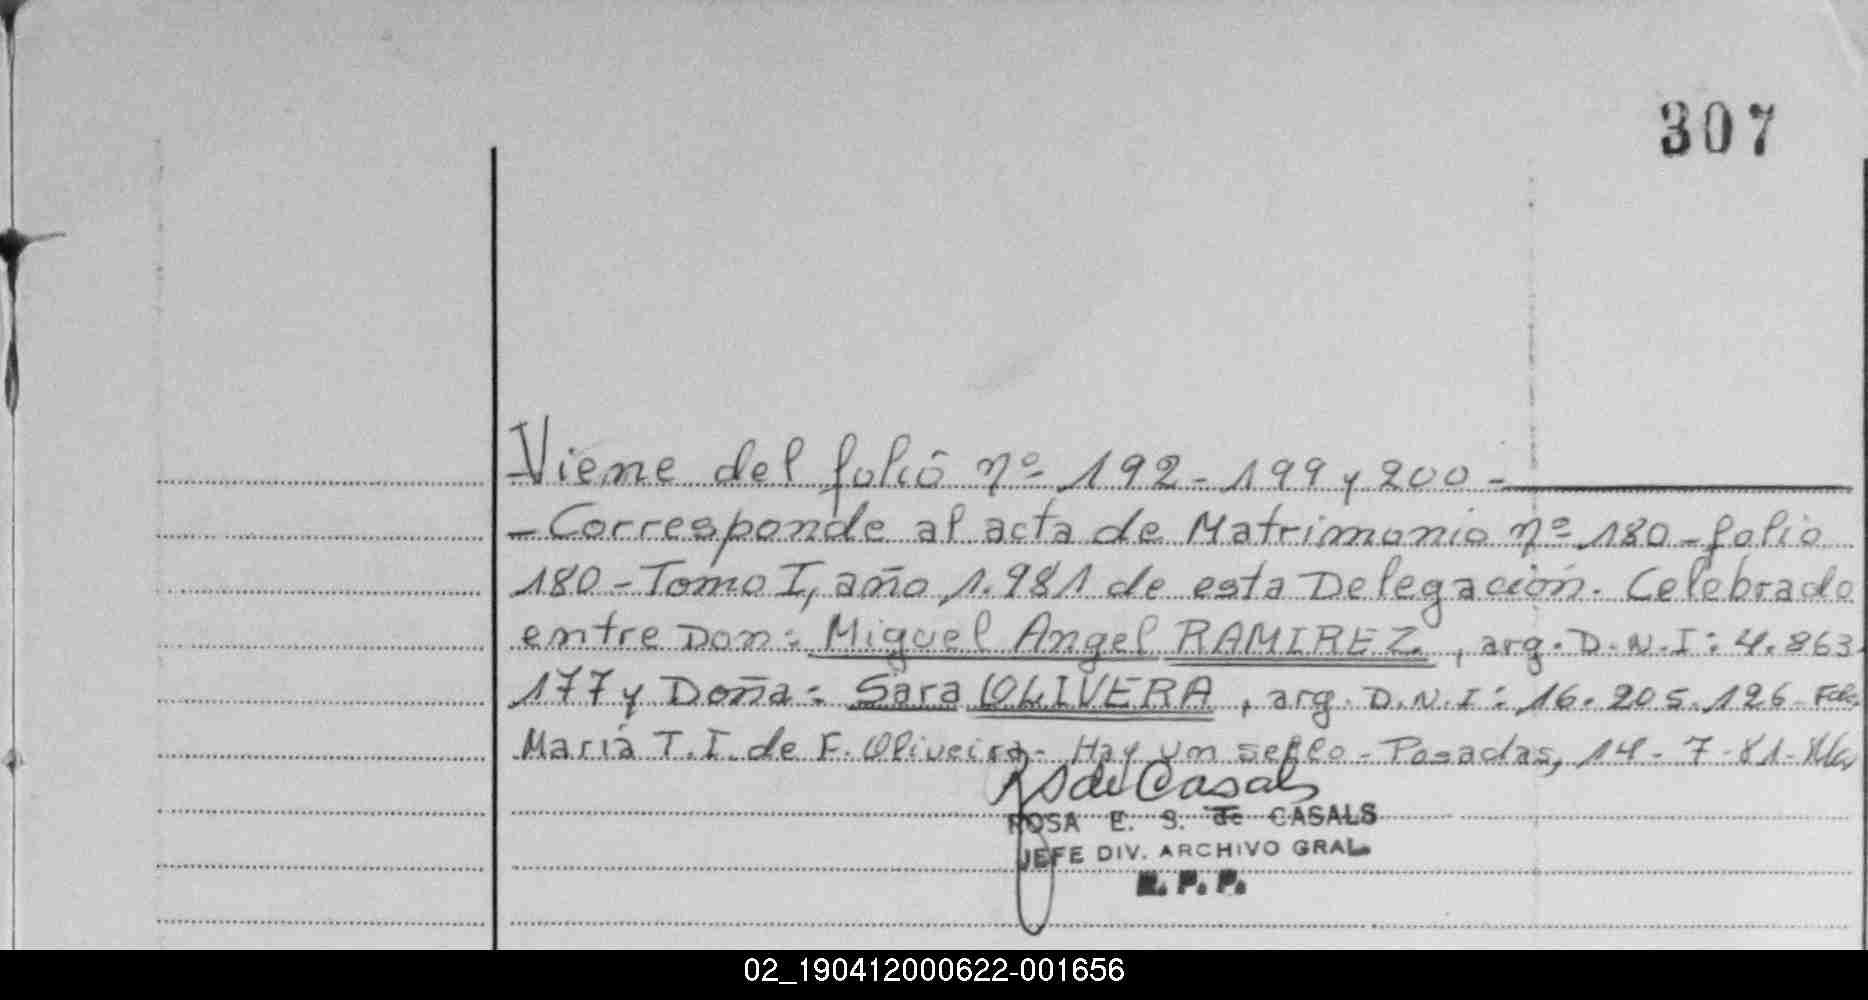 307
-Viene del folio nº 192-199 y 200-
-Corresponde al acta de Matrimonio nº 180-folio
180-Tomo I, año 1.981 de esta Delegación. Celebrado
entre Don: Miguel Angel RAMIREZ, arg. D.N.I: 4.863.
177 y Doña: Sara OLIVERA, arg. D.N.I: 16.205.126-Fdo.
María T. I. de F. Oliveira- Hay un sello-Posadas, 14-7-81-
RSdeCasals
ROSA E. S. de CASALS
JEFE DIV. ARCHIVO GRAL.
R. P. P.
02_190412000622-001656